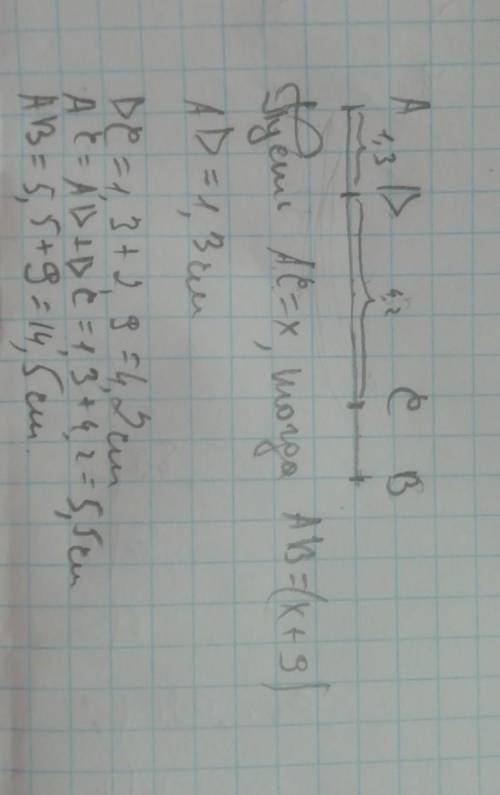 A D C B
1,3 4,2
Пусть AC = x, тогда AB = (x + 9)
AD = 1,3 см
DC = 1,3 + 2,9 = 4,2 см
AC = AD + DC = 1,3 + 4,2 = 5,5 см
AB = 5,5 + 9 = 14,5 см.